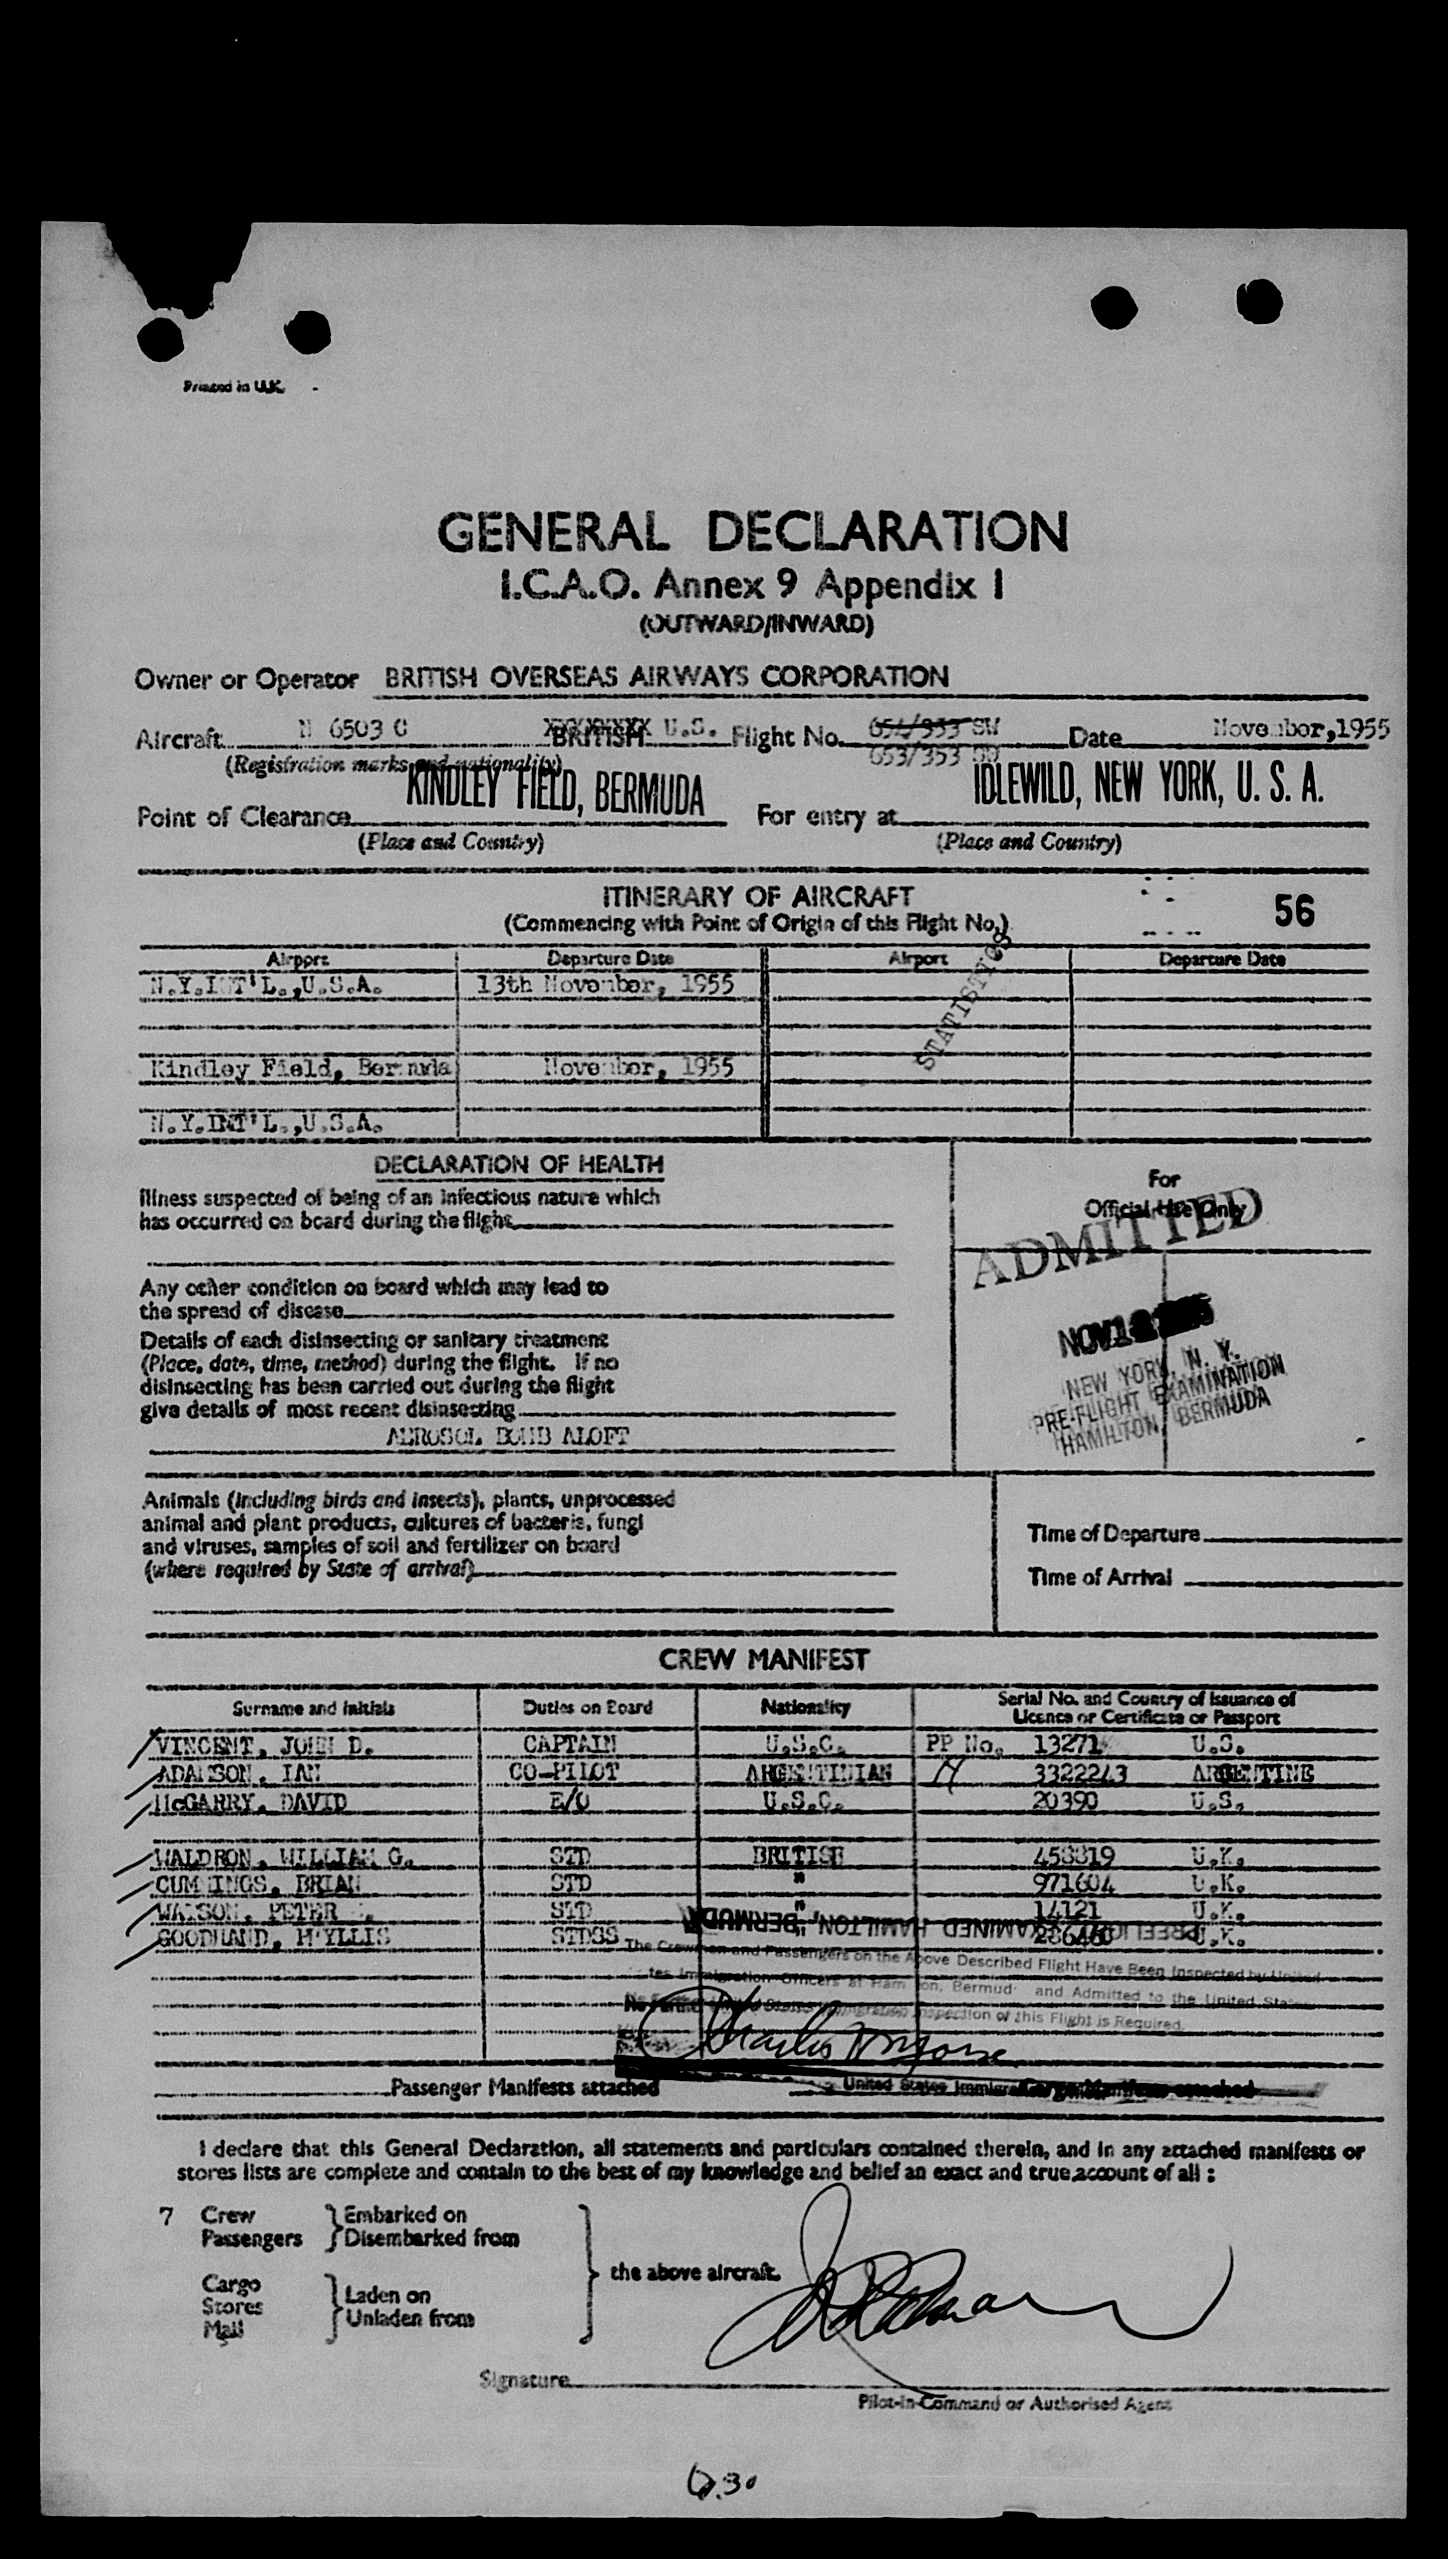 Printed in U.K.
GENERAL DECLARATION
I.C.A.O. Annex 9 Appendix 1
(OUTWARD/INWARD)
Owner or Operator BRITISH OVERSEAS AIRWAYS CORPORATION
Aircraft N 6503 C BRITISH U.S. Flight No. 654/353 SW Date November,1955
(Registration marks and nationality) 653/353
KINDLEY FIELD, BERMUDA IDLEWILD, NEW YORK, U. S. A.
Point of Clearance For entry at
(Place and Country) (Place and Country)
ITINERARY OF AIRCRAFT 56
(Commencing with Point of Origin of this Flight No.)
Airport Departure Date Airport Departure Date
N.Y.INT'L.,U.S.A. 13th November, 1955
STATISTICS
Kindley Field, Bermuda November, 1955
N.Y.INT'L.,U.S.A.
DECLARATION OF HEALTH
Illness suspected of being of an infectious nature which
has occurred on board during the flight
For
Official Use Only
ADMITTED
Any other condition on board which may lead to
the spread of disease
Details of each disinsecting or sanitary treatment
(Place, date, time, method) during the flight. If no
disinsecting has been carried out during the flight
give details of most recent disinsecting
AEROSOL BOMB ALOFT
NOV
NEW YORK, N. Y.
PRE-FLIGHT EXAMINATION
HAMILTON, BERMUDA
Animals (including birds and insects), plants, unprocessed
animal and plant products, cultures of bacteria, fungi
and viruses, samples of soil and fertilizer on board
(where required by State of arrival)
Time of Departure
Time of Arrival
CREW MANIFEST
Surname and Initials Duties on Board Nationality Serial No. and Country of Issuance of
Licence or Certificate or Passport
VINCENT, JOHN D. CAPTAIN U.S.C. PP No. 13271 U.S.
ADAMSON, IAN CO-PILOT ARGENTINIAN 3322243 ARGENTINE
McGARRY, DAVID E/O U.S.C. 20390 U.S.
WALDRON, WILLIAM G. STD BRITISH 458819 U.K.
CUMMINGS, BRIAN STD " 971604 U.K.
WATSON, PETER STD " 14121 U.K.
GOODHAND, PHYLLIS STDSS 286460 U.K.
PREFLIGHT EXAMINED HAMILTON, BERMUDA
The Crewmen and Passengers on the Above Described Flight Have Been Inspected by United
States Immigration Officers at Hamilton, Bermuda and Admitted to the United States
No Further United States Immigration Inspection of this Flight is Required.
Passenger Manifests attached United States Immigra Cargo Manifests attached
I declare that this General Declaration, all statements and particulars contained therein, and in any attached manifests or
stores lists are complete and contain to the best of my knowledge and belief an exact and true account of all :
7 Crew Embarked on
Passengers Disembarked from
the above aircraft.
Cargo Laden on
Stores
Mail Unladen from
Signature
Pilot-in-Command or Authorised Agent